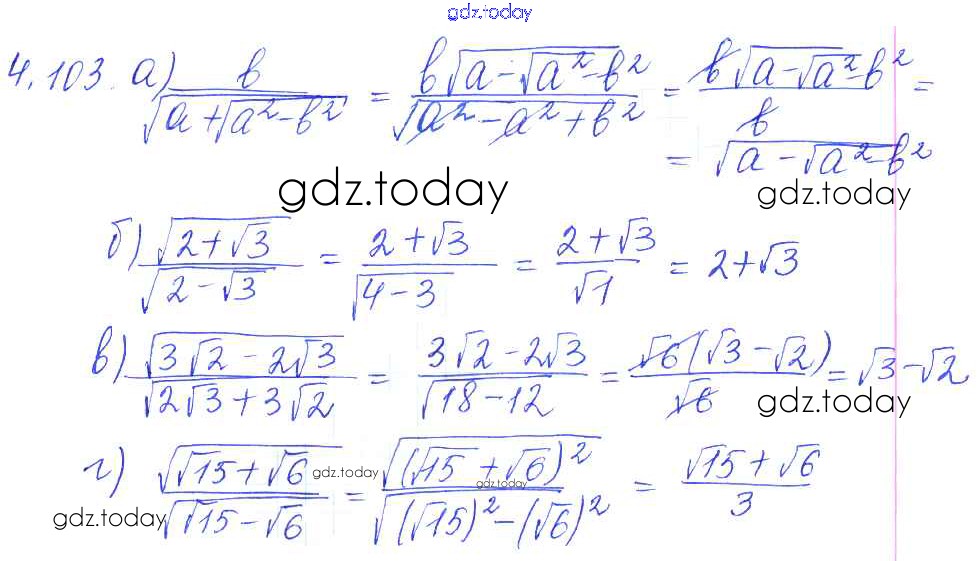 gdz.today
4.103. а) b/√(a+√(a²-b²)) = b√(a-√(a²-b²))/√(a²-a²+b²) = b√(a-√(a²-b²))/b =
= √(a-√(a²-b²))
gdz.today gdz.today
б) √(2+√3)/√(2-√3) = (2+√3)/√(4-3) = (2+√3)/√1 = 2+√3
в) √(3√2-2√3)/√(2√3+3√2) = (3√2-2√3)/√(18-12) = √6(√3-√2)/√6 = √3-√2
gdz.today
г) √(√15+√6)/√(√15-√6) = √((√15+√6)²)/√((√15)²-(√6)²) = (√15+√6)/3
gdz.today
gdz.today
gdz.today